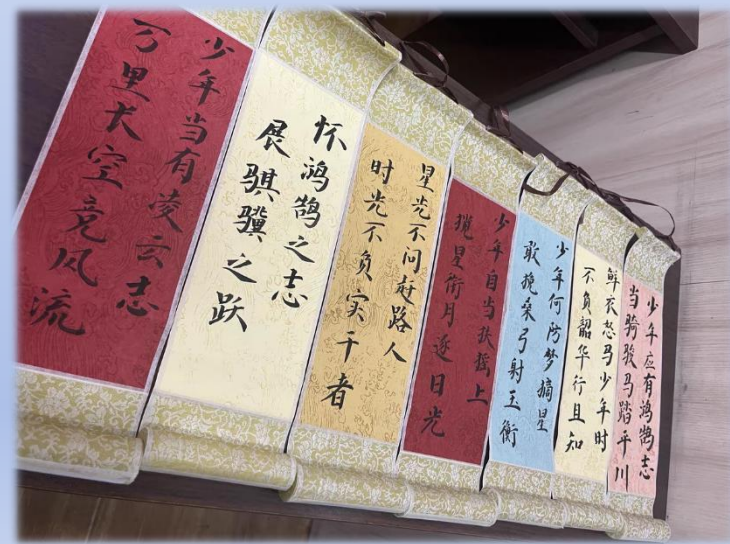 少年当有凌云志
万里长空竞风流
怀鸿鹄之志
展骐骥之跃
星光不问赶路人
时光不负实干者
少年自当扶摇上
揽星衔月逐日光
少年何妨梦摘星
敢挽桑弓射玉衡
鲜衣怒马少年时
不负韶华行且知
少年应有鸿鹄志
当骑骏马踏平川